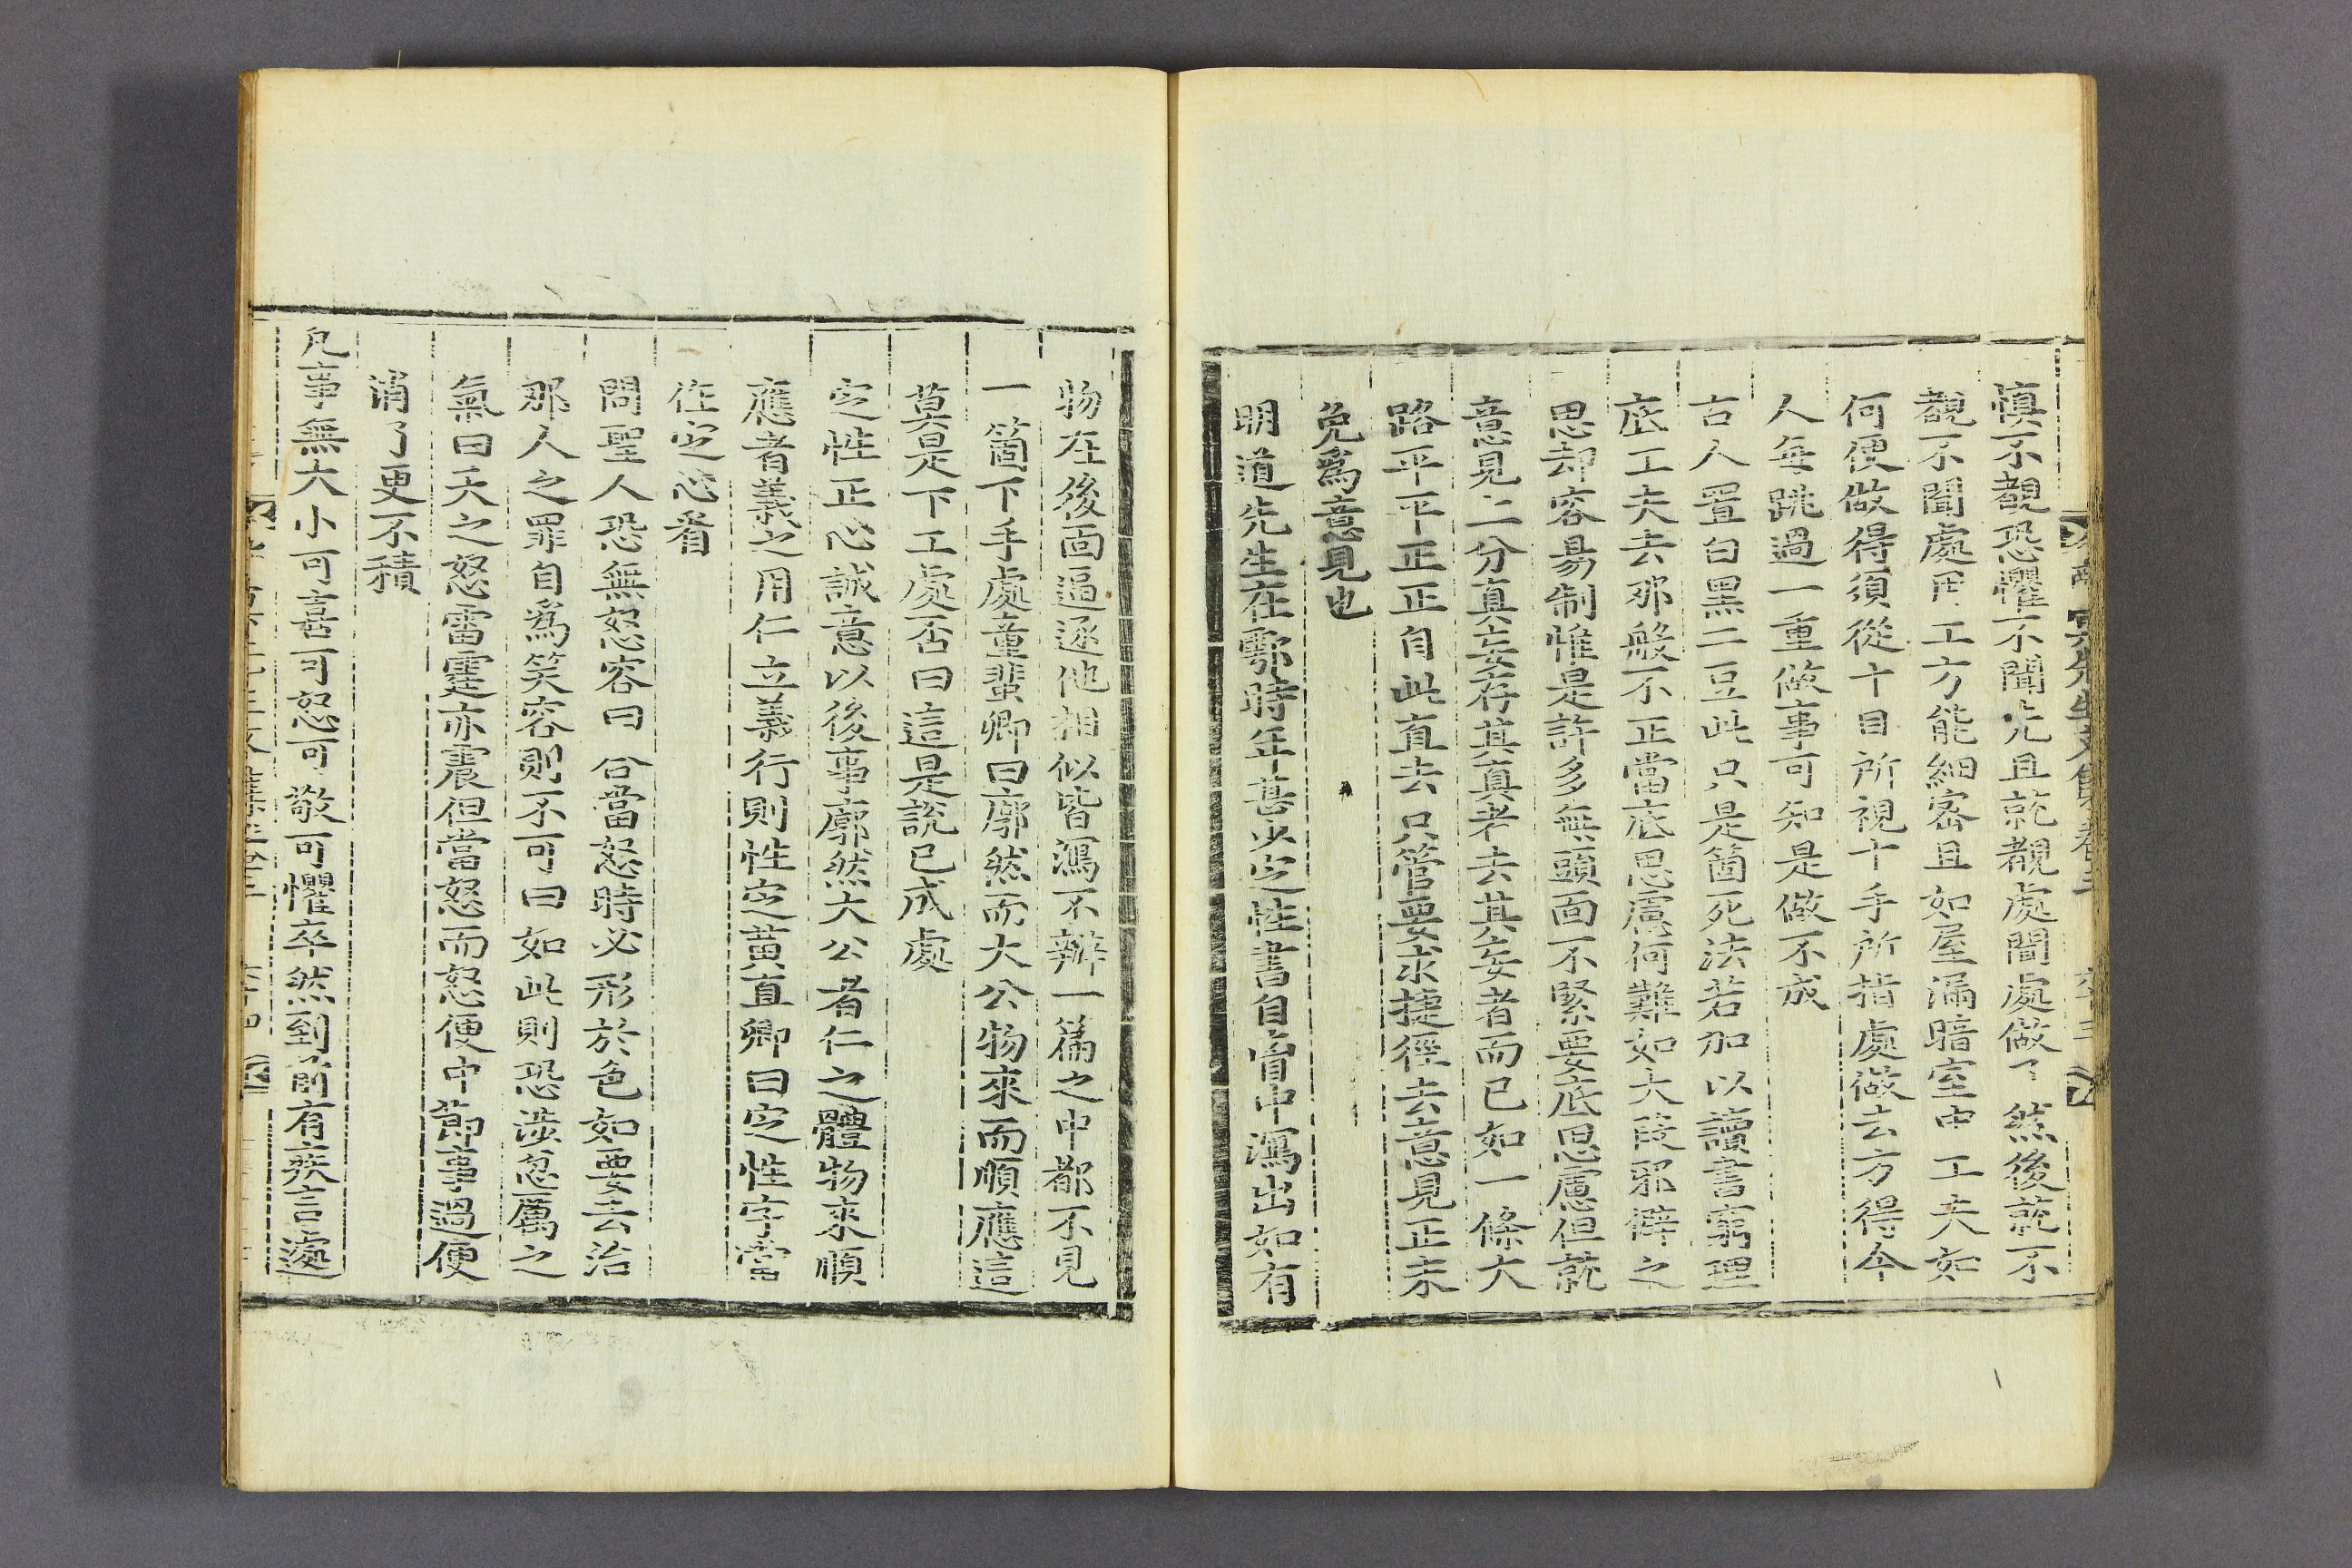 慎不覩恐懼不聞先且就覩處聞處做了然後就不
覩不聞處用工方能細密且如屋漏暗室中工夫如
何便做得須從十目所視十手所指處做去方得今
人每跳過一重做事可知是做不成
古人置白黑二豆此只是箇死法若加以讀書窮理
底工夫去那般不正當底思慮何難如大段邪僻之
思却容易制惟是許多無頭面不緊要底思慮但就
意見二分真妄存其真者去其妄者而已如一條大
路平平正正自此直去只管要求捷徑去意見正未
免爲意見也
明道先生在鄠時年甚少定性書自胷中瀉出如有
物在後面逼逐他相似皆瀉不辦一篇之中都不見
一箇下手處童蜚卿曰廓然而大公物來而順應這
莫是下工處否曰這是說已成處
定性正心誠意以後事廓然大公者仁之體物來順
應者義之用仁立義行則性定黃直卿曰定性字當
作定心看
問聖人恐無怒容曰合當怒時必形於色如要去治
那人之罪自爲笑容則不可曰如此則恐涉忿厲之
氣曰天之怒雷霆亦震但當怒而怒便中節事過便
消了更不積
凡事無大小可喜可怒可敬可懼卒然到前有疾言遽